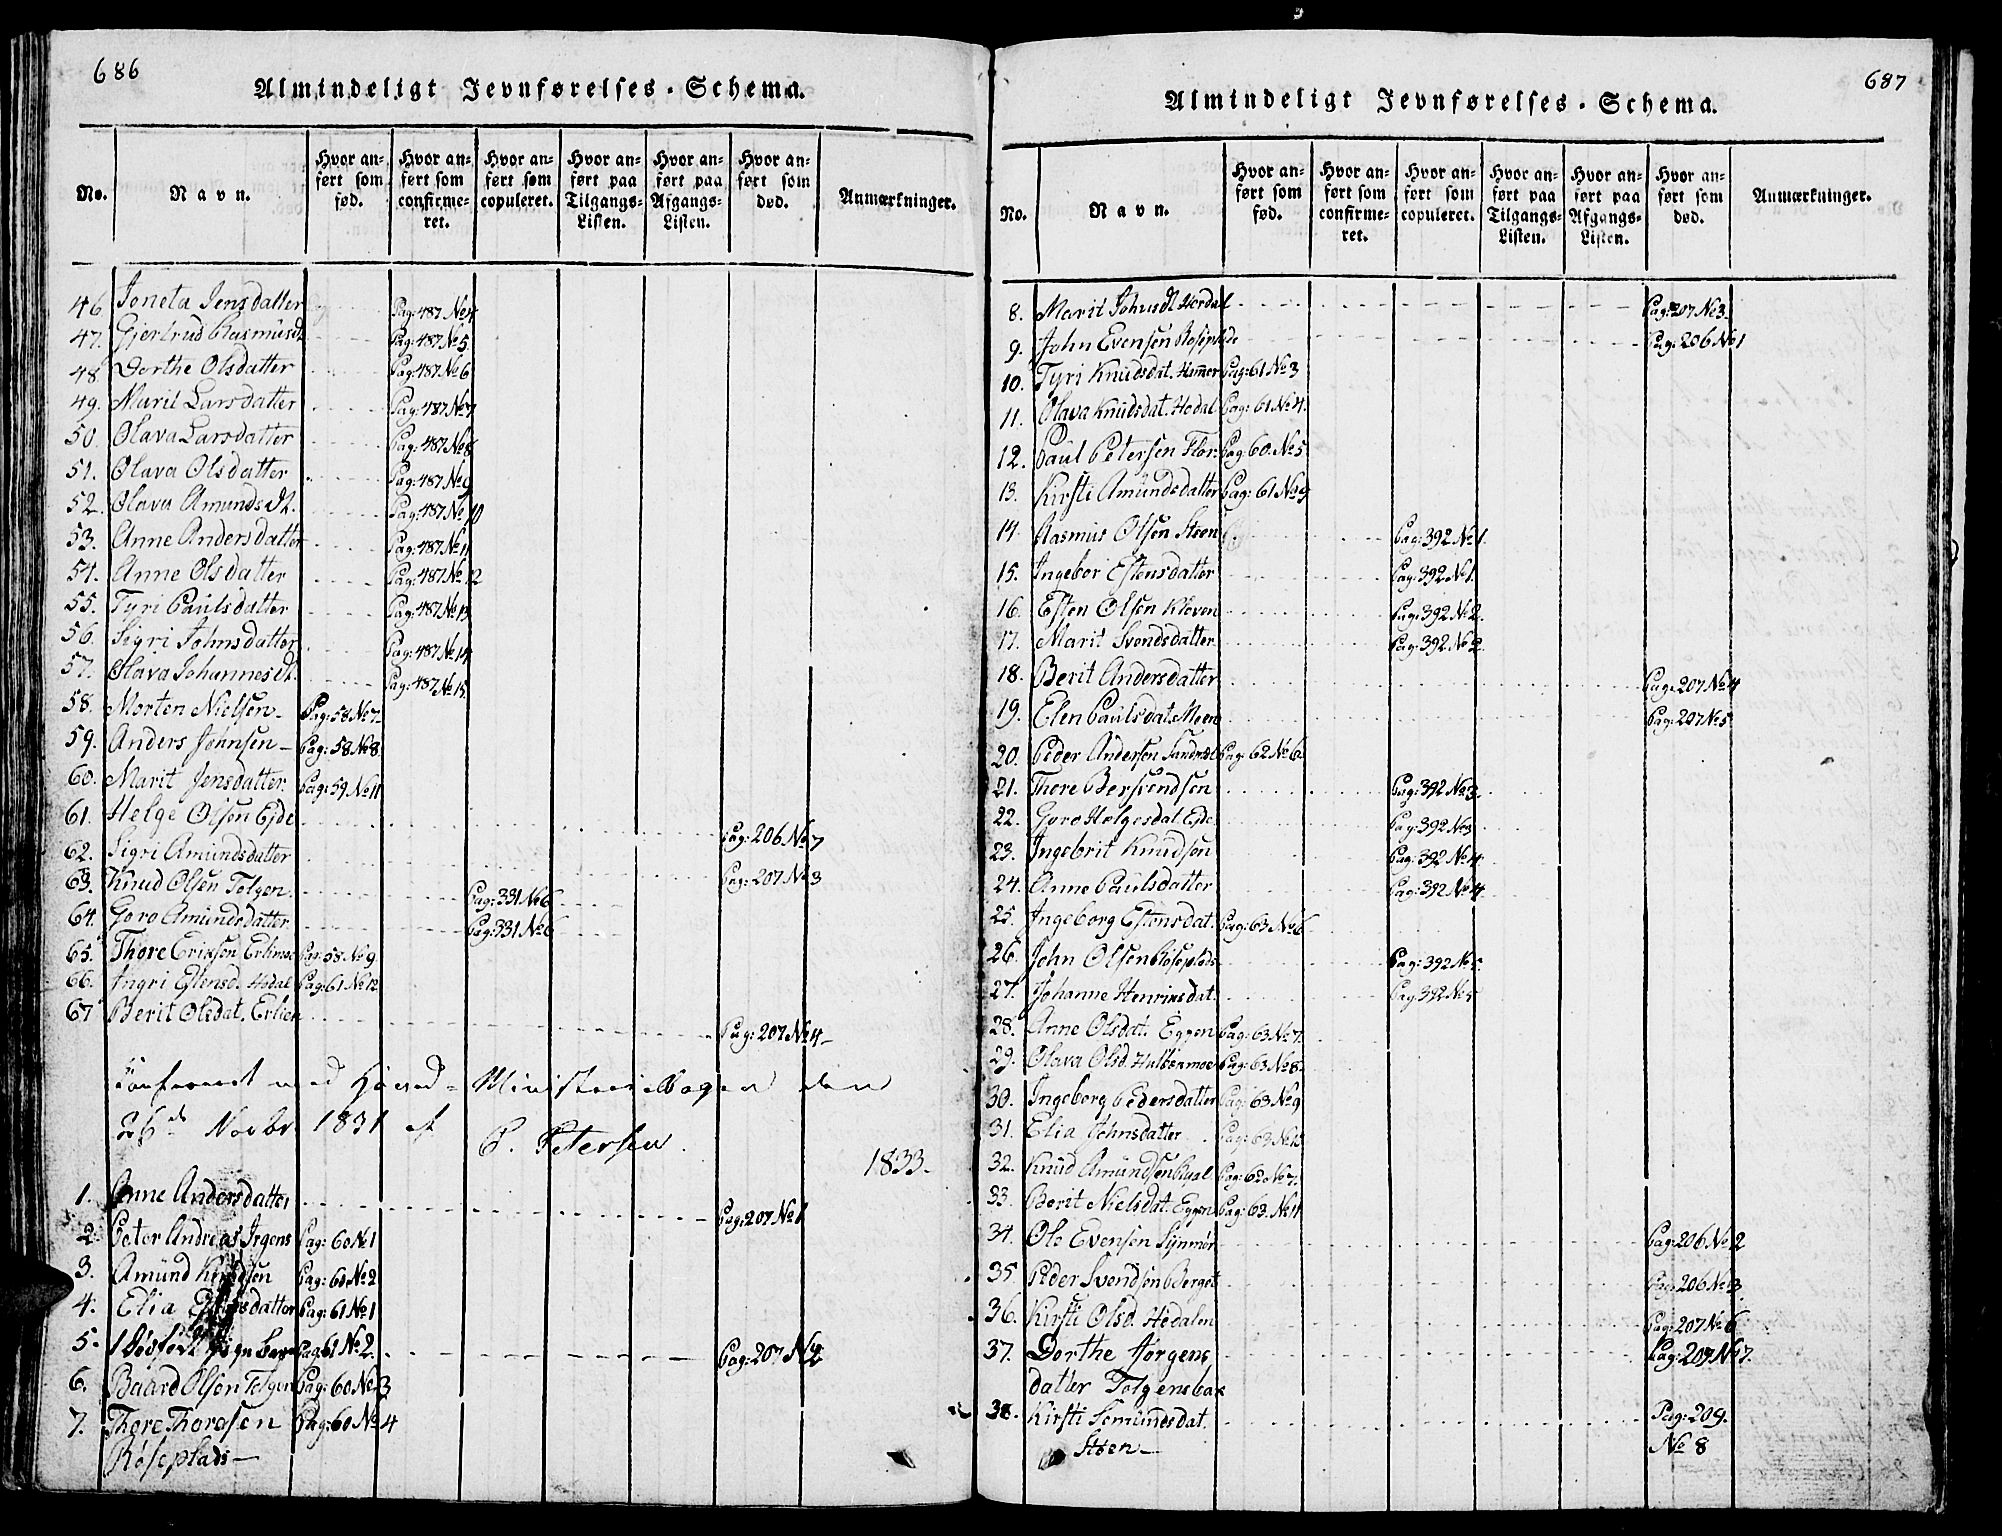 686
Almindeligt Jevnførelses-Schema.
No. Navn. Hvor anført som fød. Hvor anført som confirmeret. Hvor anført som copuleret. Hvor anført paa Tilgangs-Listen. Hvor anført paa Afgangs-Listen. Hvor anført som død. Anmærkninger.
46 Joneta Jensdatter Pag: 487 No 4
47. Gjertrud Rasmusdt. Pag: 487 No 5.
48. Dorthe Olsdatter Pag: 487 No 6
49. Marit Larsdatter Pag: 487 No 7
50. Olava Larsdatter Pag: 487 No 8
51. Olava Olsdatter Pag: 487 No 9
52. Olava Amundsdt. Pag: 487 No 10
53. Anne Andersdatter Pag: 487 No 11
54. Anne Olsdatter Pag: 487 No 12
55. Tyri Paulsdatter Pag: 487 No 13
56. Sigri Johnsdatter Pag: 487 No 14
57. Olava Johannesdt. Pag: 487 No 15
58. Morten Nielsen Pag: 58 No 7
59. Anders Johnsen Pag: 58 No 8
60. Marit Jensdatter Pag: 59 No 11
61. Helge Olsen Eide Pag: 206 No 7
62. Sigri Amundsdatter Pag: 207 No 3
63. Knud Olsen Tolgen Pag: 331 No 6
64. Goro Amundsdatter Pag: 331 No 6
65. Thore Eriksen Erlimoe Pag: 58 No 9
66. Ingri Estensd. Hodal Pag: 61 No 12
67 Berit Olsdat. Erlien Pag: 207 No 4
Confereret med Hoved-Ministerialbogen den
26de Novbr 1831 af P. Petersen.
1833.
1. Anne Andersdatter Pag: 207 No 1
2. Peter Andreas Irgens Pag: 60 No 1
3. Amund Knudsen Pag: 60 No 2
4. Elia datter Pag: 61 No 1
5. Dødfødt Pag: 61 No 2. Pag: 207 No 2
6. Baard Olsen Tolgen Pag: 60 No 3
7. Thore Thoresen Pag: 60 No 4
Røseplads
687
Almindeligt Jevnførelses-Schema.
No. Navn. Hvor anført som fød. Hvor anført som confirmeret. Hvor anført som copuleret. Hvor anført paa Tilgangs-Listen. Hvor anført paa Afgangs-Listen. Hvor anført som død. Anmærkninger.
8. Marit Johnsdt Hordal Pag: 207 No 3.
9. John Evensen Røseplads Pag: 206 No 1
10. Tyri Knudsdat. Hommer Pag: 61 No 3
11. Olava Knudsdat. Hodal Pag: 61 No 4.
12. Paul Petersen Flor. Pag: 60. No 5
13. Kirsti Amundsdatter Pag: 61 No 9
14. Rasmus Olsen Steen Pag: 392 No 1.
15. Ingebor Estensdatter Pag: 392 No 1.
16. Esten Olsen Kleven Pag: 392 No 2.
17. Marit Svendsdatter Pag: 392 No 2
18. Berit Andersdatter Pag: 207 No 4
19. Elen Paulsdat. Moen Pag: 207 No 5.
20. Peder Andersen Sandnæs Pag: 62 No 6
21. Thore Bersvendsen Pag: 392 No 3.
22. Goro Helgesdat. Eide Pag: 392 No 3
23. Ingebrit Knudsen Pag: 392 No 4.
24. Anne Paulsdatter Pag: 392 No 4
25. Ingeborg Estensdat. Pag: 63 No 6
26. John Olsen Røseplads Pag: 392 No 5.
27. Johanne Henriksdat. Pag: 392 No 5
28. Anne Olsdat. Eggen Pag: 63 No 7.
29. Olava Olsd. Hulbekmoe Pag: 63 No 8.
30. Ingeborg Pedersdatter Pag: 63 No 9
31. Elia Johnsdatter Pag: 63 No 10
32. Knud Amundsen Pag: 62 No 7.
33. Berit Nielsdat. Eggen Pag: 63. No 11
34. Ole Evensen Synmør Pag: 206 No 2
35. Peder Svendsen Berget Pag: 206 No 3
36. Kirsti Olsd. Hedalen Pag: 207 No 6
37. Dorthe Jørgens Pag: 207 No 7.
datter Tolgensbak
38. Kirsti Semundsdat. Pag: 209.
Støen No 8